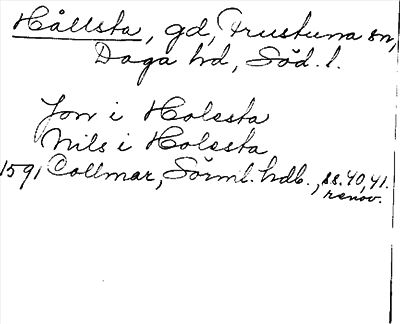 Hållsta, gd, Frustuna sn,
Daga hd, Söd. l.
Jon i Holssta
Nils i Holssta
1591 Collmar, Sörml. hdb., ss. 40, 41.
renov.